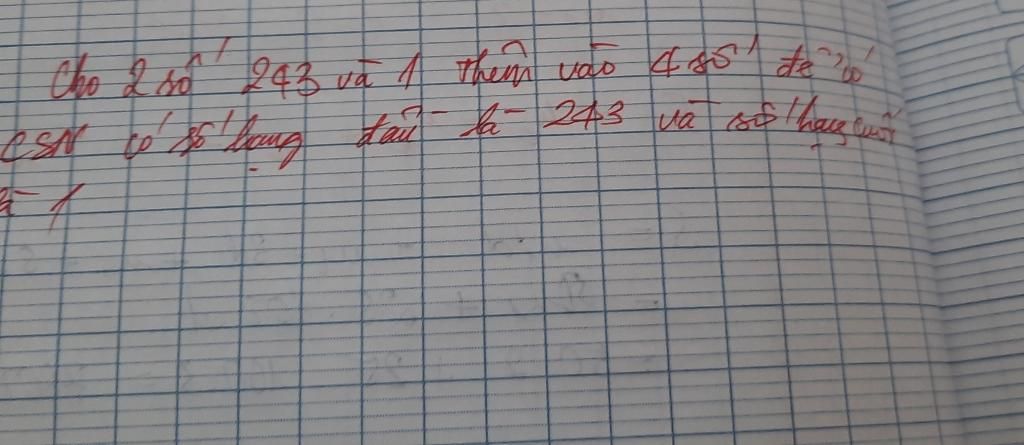 Cho 2 số 243 và 1 thêm vào 4 số để có
CSN có số hạng đầu là 243 và số hạng cuối
là 1